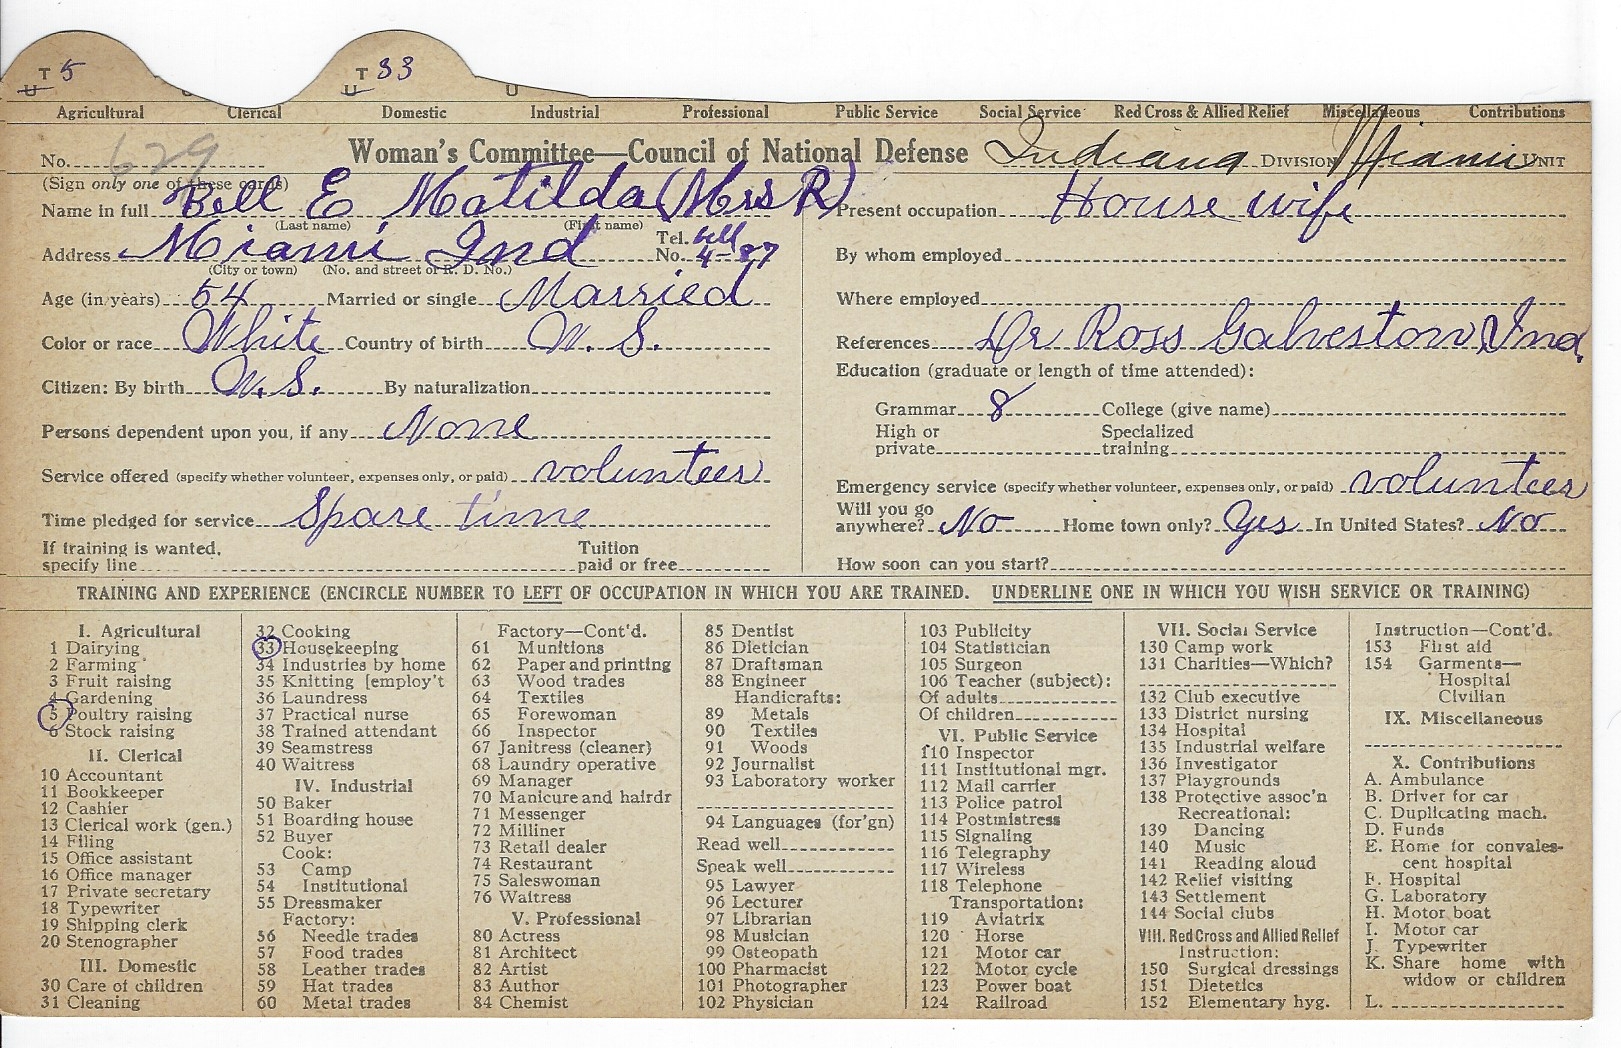 T 5 T 33
U U U
Agricultural Clerical Domestic Industrial Professional Public Service Social Service Red Cross & Allied Relief Miscellaneous Contributions
No. 629 Woman's Committee—Council of National Defense Indiana DIVISION Miami UNIT
(Sign only one of these cards)
Name in full Bell E Matilda (Mrs R)
(Last name) (First name)
Address Miami Ind Tel. No. bell 4-87
(City or town) (No. and street or R. D. No.)
Age (in years) 54 Married or single Married
Color or race White Country of birth U. S.
Citizen: By birth U. S. By naturalization
Persons dependent upon you, if any None
Service offered (specify whether volunteer, expenses only, or paid) volunteer
Time pledged for service Spare time
If training is wanted, specify line Tuition paid or free
Present occupation House wife
By whom employed
Where employed
References Dr Ross Galveston, Ind.
Education (graduate or length of time attended):
Grammar 8 College (give name)
High or private Specialized training
Emergency service (specify whether volunteer, expenses only, or paid) volunteer
Will you go anywhere? No Home town only? Yes In United States? No
How soon can you start?
TRAINING AND EXPERIENCE (ENCIRCLE NUMBER TO LEFT OF OCCUPATION IN WHICH YOU ARE TRAINED. UNDERLINE ONE IN WHICH YOU WISH SERVICE OR TRAINING)
I. Agricultural
1 Dairying
2 Farming
3 Fruit raising
4 Gardening
5 Poultry raising
6 Stock raising
II. Clerical
10 Accountant
11 Bookkeeper
12 Cashier
13 Clerical work (gen.)
14 Filing
15 Office assistant
16 Office manager
17 Private secretary
18 Typewriter
19 Shipping clerk
20 Stenographer
III. Domestic
30 Care of children
31 Cleaning
32 Cooking
33 Housekeeping
34 Industries by home
35 Knitting [employ't
36 Laundress
37 Practical nurse
38 Trained attendant
39 Seamstress
40 Waitress
IV. Industrial
50 Baker
51 Boarding house
52 Buyer
Cook:
53 Camp
54 Institutional
55 Dressmaker
Factory:
56 Needle trades
57 Food trades
58 Leather trades
59 Hat trades
60 Metal trades
Factory—Cont'd.
61 Munitions
62 Paper and printing
63 Wood trades
64 Textiles
65 Forewoman
66 Inspector
67 Janitress (cleaner)
68 Laundry operative
69 Manager
70 Manicure and hairdr
71 Messenger
72 Milliner
73 Retail dealer
74 Restaurant
75 Saleswoman
76 Waitress
V. Professional
80 Actress
81 Architect
82 Artist
83 Author
84 Chemist
85 Dentist
86 Dietician
87 Draftsman
88 Engineer
Handicrafts:
89 Metals
90 Textiles
91 Woods
92 Journalist
93 Laboratory worker
94 Languages (for'gn)
Read well
Speak well
95 Lawyer
96 Lecturer
97 Librarian
98 Musician
99 Osteopath
100 Pharmacist
101 Photographer
102 Physician
103 Publicity
104 Statistician
105 Surgeon
106 Teacher (subject):
Of adults
Of children
VI. Public Service
110 Inspector
111 Institutional mgr.
112 Mail carrier
113 Police patrol
114 Postmistress
115 Signaling
116 Telegraphy
117 Wireless
118 Telephone
Transportation:
119 Aviatrix
120 Horse
121 Motor car
122 Motor cycle
123 Power boat
124 Railroad
VII. Social Service
130 Camp work
131 Charities—Which?
132 Club executive
133 District nursing
134 Hospital
135 Industrial welfare
136 Investigator
137 Playgrounds
138 Protective assoc'n
Recreational:
139 Dancing
140 Music
141 Reading aloud
142 Relief visiting
143 Settlement
144 Social clubs
VIII. Red Cross and Allied Relief
Instruction:
150 Surgical dressings
151 Dietetics
152 Elementary hyg.
Instruction—Cont'd.
153 First aid
154 Garments—
Hospital
Civilian
IX. Miscellaneous
X. Contributions
A. Ambulance
B. Driver for car
C. Duplicating mach.
D. Funds
E. Home for convales-
cent hospital
F. Hospital
G. Laboratory
H. Motor boat
I. Motor car
J. Typewriter
K. Share home with
widow or children
L.